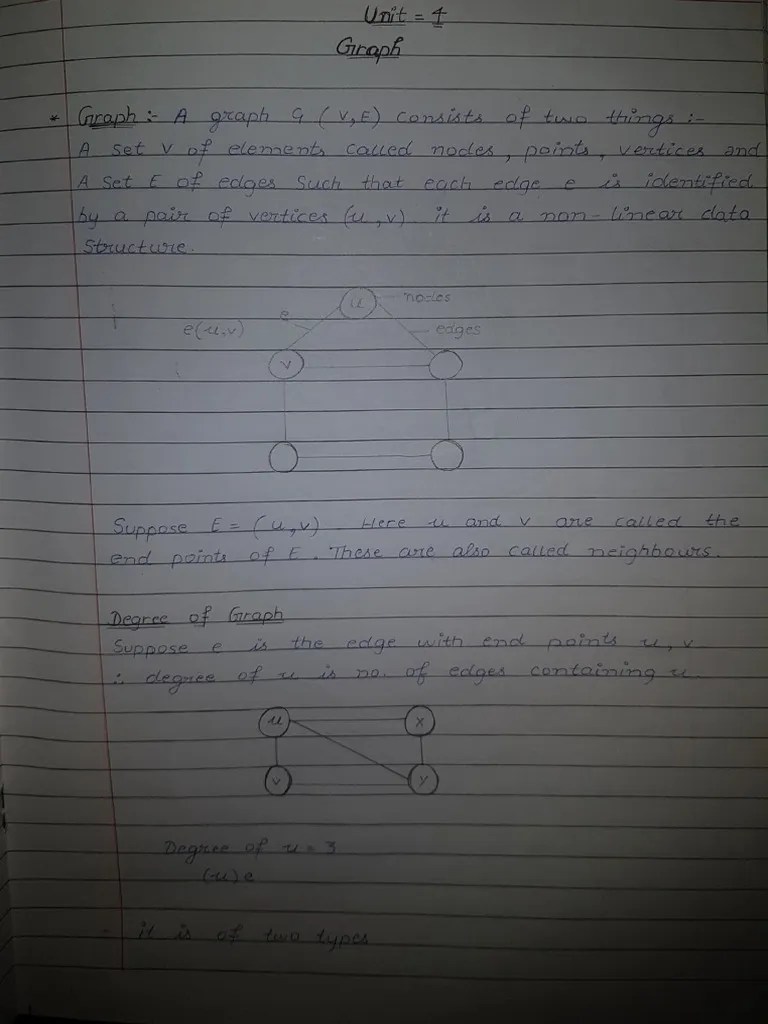 Unit = 4
Graph
* Graph :- A graph G (V,E) consists of two things :-
A set V of elements called nodes, points, vertices and
A set E of edges such that each edge e is identified
by a pair of vertices (u,v) it is a non-linear data
structure.
u nodes
e
e(u,v) edges
v
Suppose E = (u,v). Here u and v are called the
end points of E. These are also called neighbours.
Degree of Graph
Suppose e is the edge with end points u, v
∴ degree of u is no. of edges containing u.
u x
v y
Degree of u = 3
(u) e
- it is of two types